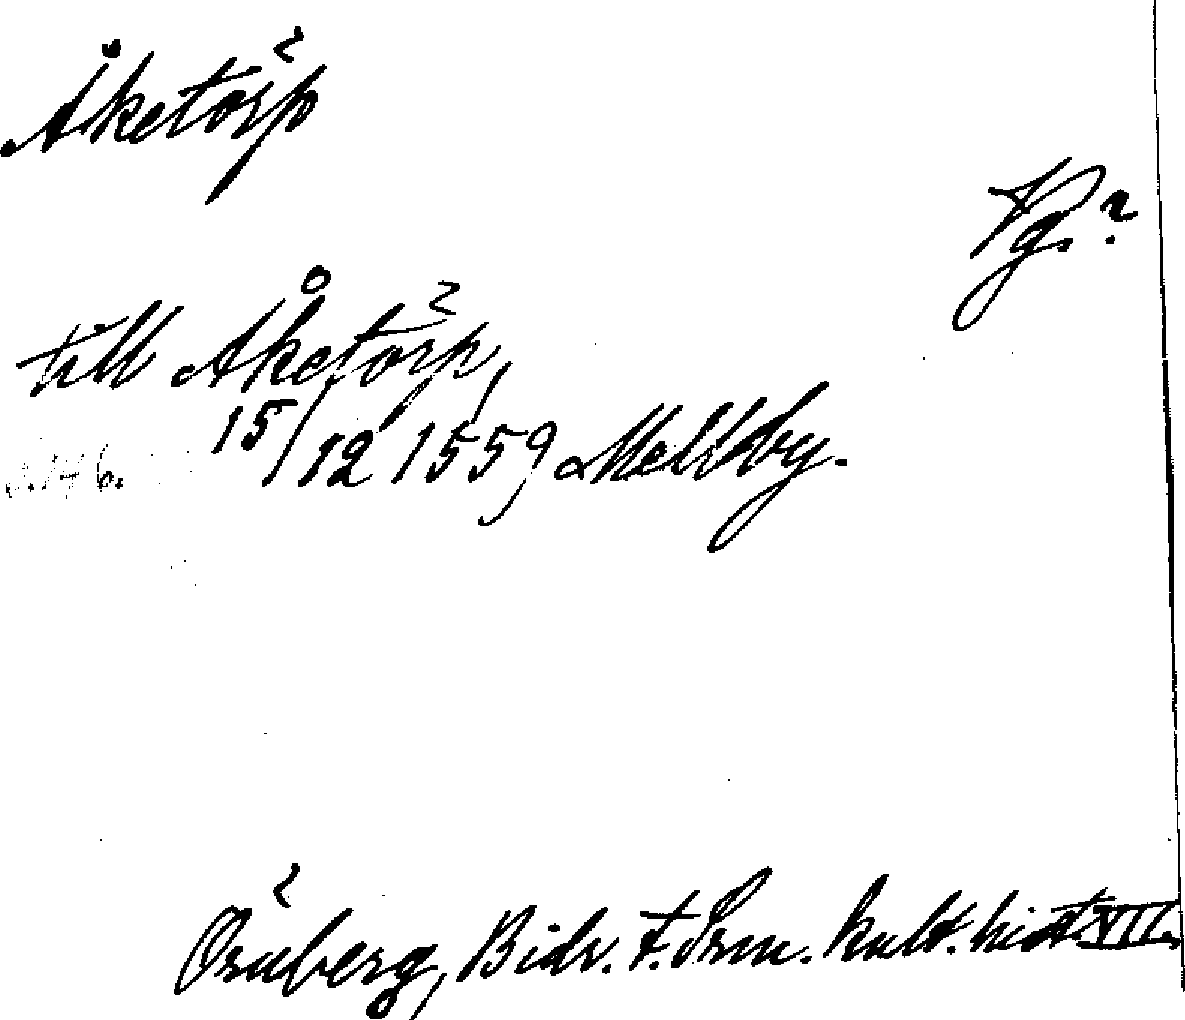 Åketorp
Vg.?
till Åketorp,
15/12 1559 Mellby.
s. 146.
Örnberg, Bidr. t. Srm. kult. hist VII.